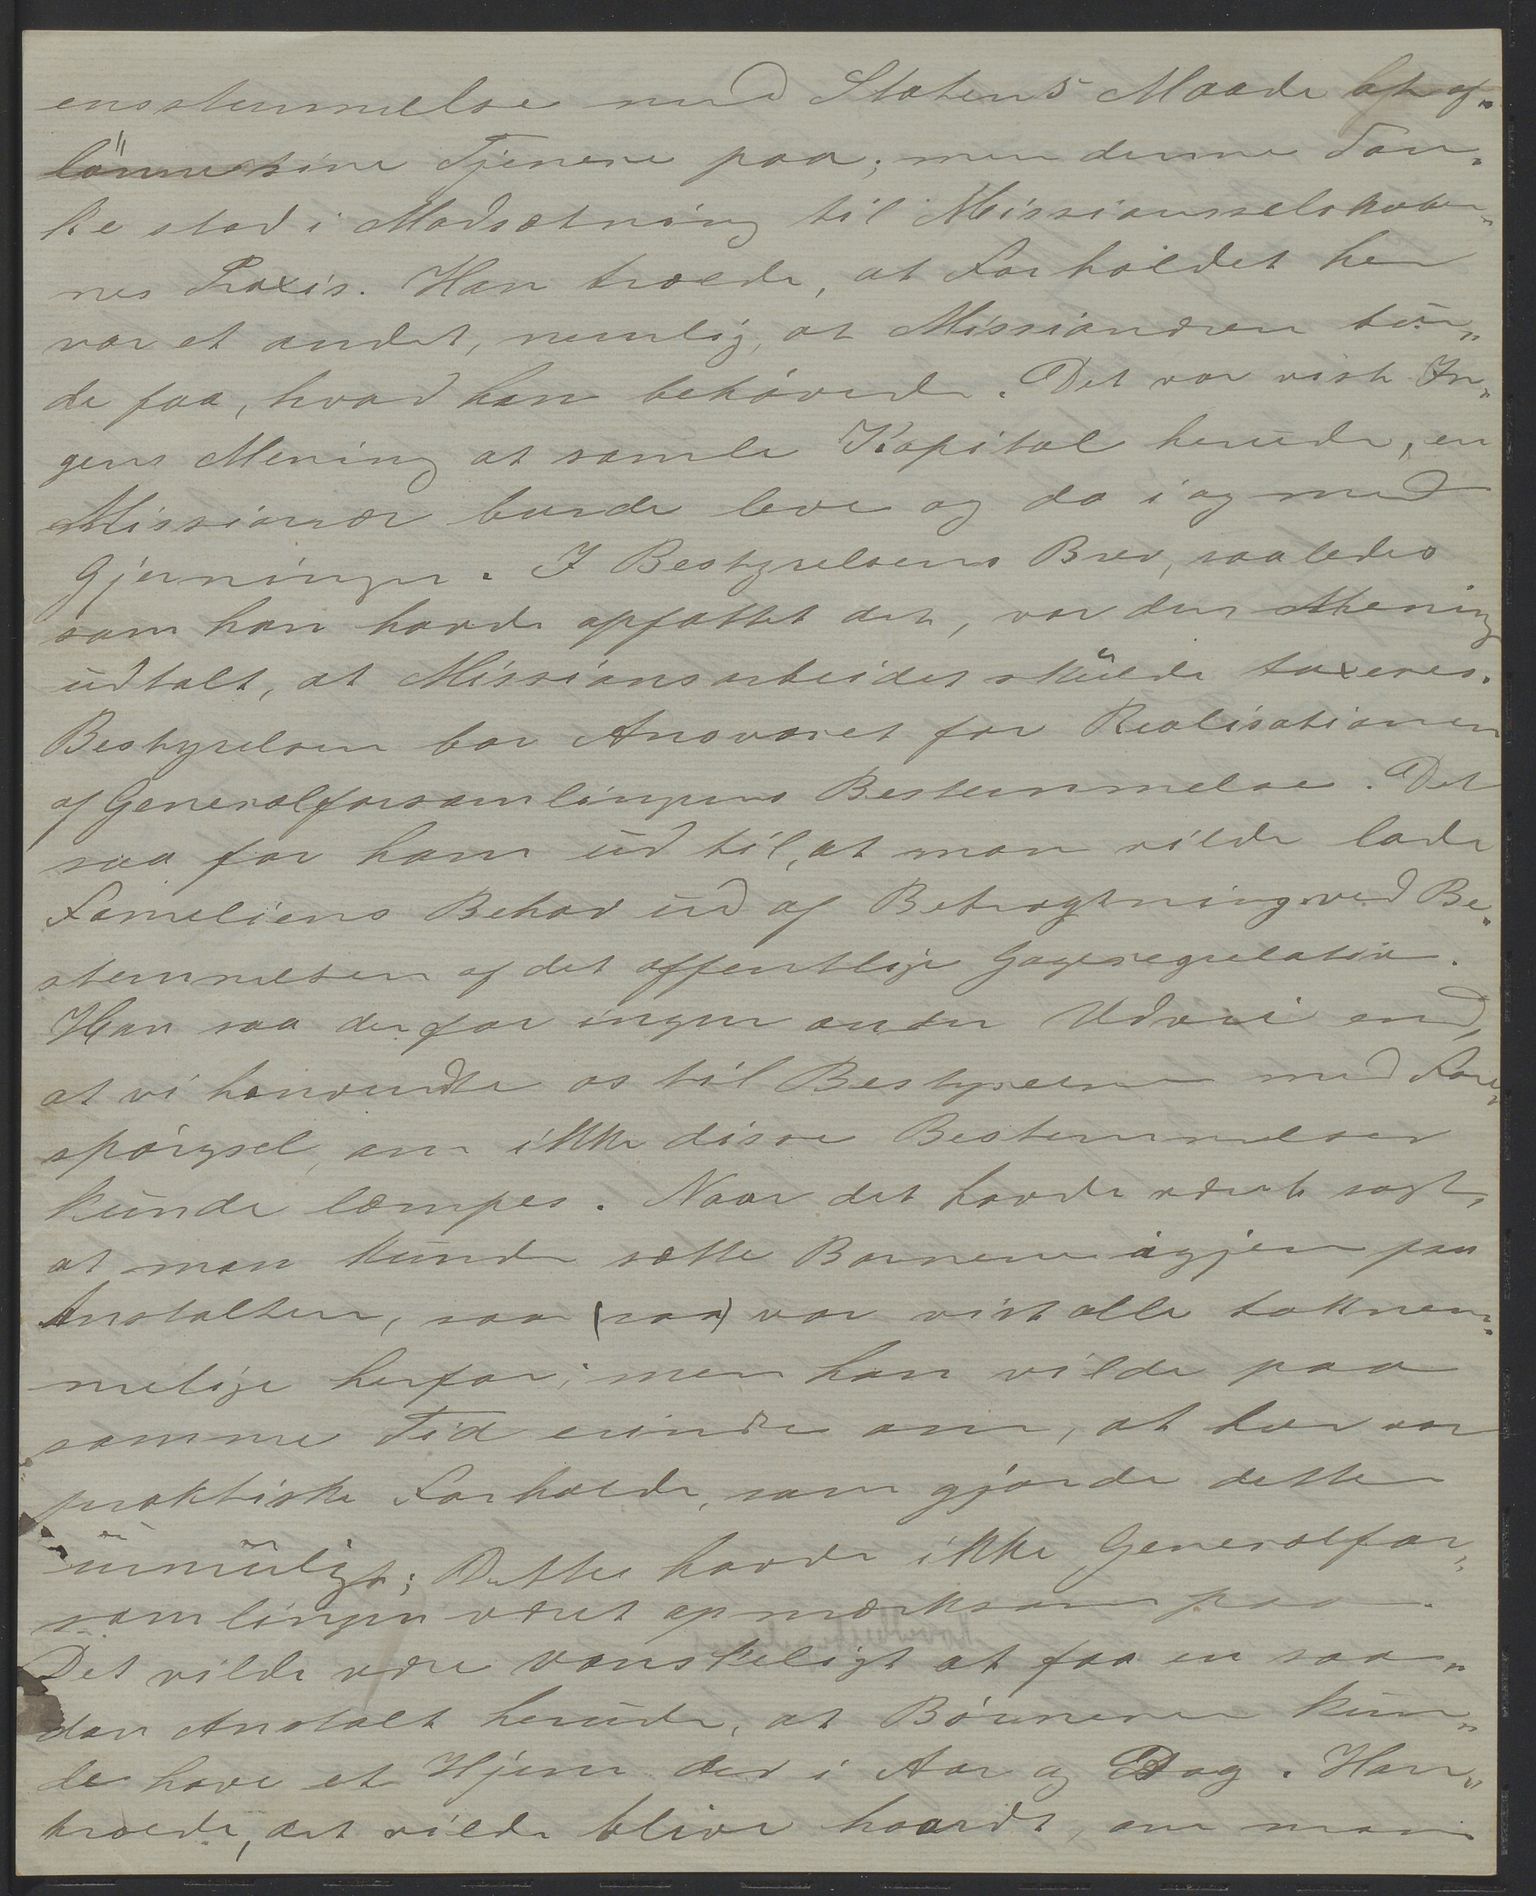 ensstemmelse med Statens Maade at af„
lönne sine Tjenere paa; men denne Tan„
ke stod i Modsætning til Missionsselskaber„
nes Praxis. Han troede, at Forholdet her
var et andet, nemlig, at Missionæren bur„
de faa, hvad han behövede. Det var vist In„
gens Mening at samle Kapital herude, en
Missionær burde leve og dø i og med
Gjerningen. I Bestyrelsens Brev, saaledes
som han havde opfattet det, var den Mening
udtalt, at Missionsarbeidet skulde taxeres.
Bestyrelsen bar Ansvaret for Realisationen
af Generalforsamlingens Bestemmelse. Det
saa for ham ud til, at man vilde lade
Familiens Behov ud af Betragtning ved Be„
stemmelsen af det offentlige Gageregulativ.
Han saa derfor ingen anden Udvei end,
at vi henvendte os til Bestyrelsen med Fore„
spörgsel, om ikke disse Bestemmelser
kunde læmpes. Naar det havde været sagt,
at man kunde sætte Børnene igjen paa
Anstalten, saa (saa) var vist alle taknem„
melige herfor; men han vilde paa
samme Tid erindre om, at her var
praktiske Forholde, som gjorde dette
umuligt; Dette havde ikke Generalfor„
samlingen været opmærksom paa.
Det vilde være vanskeligt at faa en saa„
dan Anstalt herude, at Börnene kun„
de have et Hjem der i Aar og Dag. Han
troede, det vilde blive haardt, om man